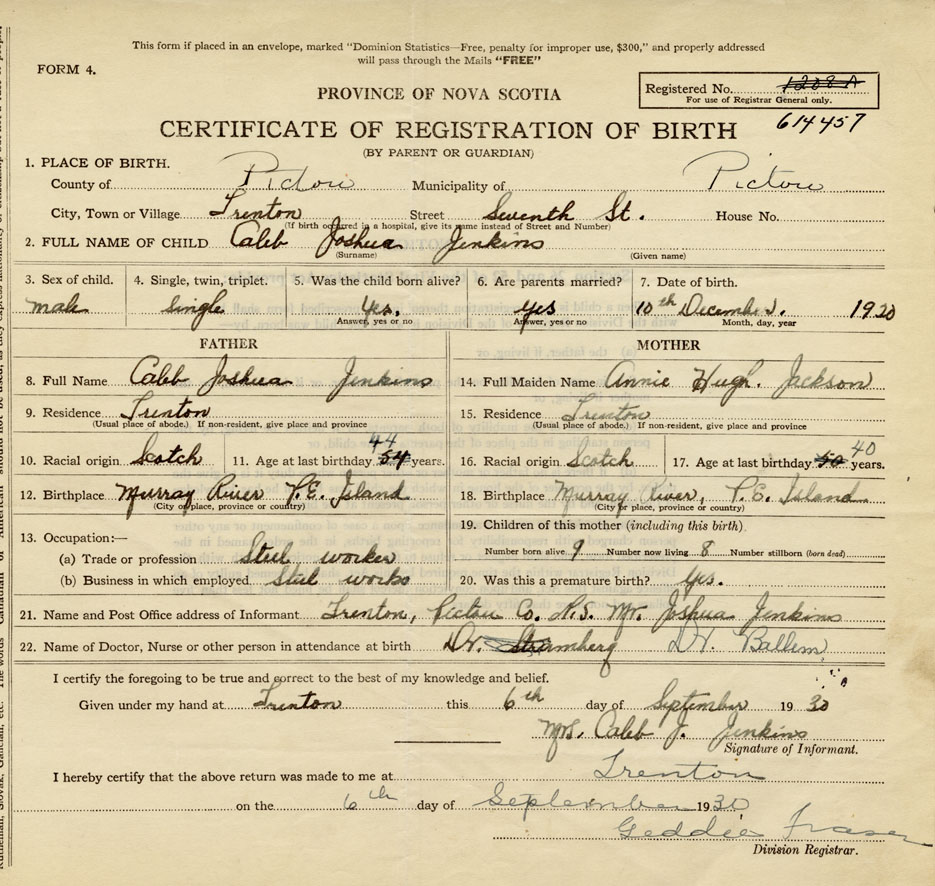 This form if placed in an envelope, marked "Dominion Statistics—Free, penalty for improper use, $300," and properly addressed
will pass through the Mails "FREE"
FORM 4.
Registered No. 1208 A
For use of Registrar General only.
PROVINCE OF NOVA SCOTIA
614457
CERTIFICATE OF REGISTRATION OF BIRTH
(BY PARENT OR GUARDIAN)
1. PLACE OF BIRTH.
County of Pictou Municipality of Pictou
City, Town or Village Trenton Street Seventh St. House No.
(If birth occurred in a hospital, give its name instead of Street and Number)
2. FULL NAME OF CHILD Caleb Joshua Jenkins
(Surname) (Given name)
3. Sex of child. 4. Single, twin, triplet. 5. Was the child born alive? 6. Are parents married? 7. Date of birth.
male single Yes. Yes 10th December. 1920
Answer, yes or no Answer, yes or no Month, day, year
FATHER MOTHER
8. Full Name Caleb Joshua Jenkins 14. Full Maiden Name Annie Hugh. Jackson
9. Residence Trenton 15. Residence Trenton
(Usual place of abode.) If non-resident, give place and province (Usual place of abode.) If non-resident, give place and province
10. Racial origin Scotch 11. Age at last birthday 54 44 years. 16. Racial origin Scotch 17. Age at last birthday 50 40 years.
12. Birthplace Murray River P.E. Island 18. Birthplace Murray River, P.E. Island
(City or place, province or country) (City or place, province or country)
13. Occupation:— 19. Children of this mother (including this birth)
(a) Trade or profession Steel worker Number born alive 9 Number now living 8 Number stillborn (born dead)
(b) Business in which employed Steel works 20. Was this a premature birth? Yes.
21. Name and Post Office address of Informant Trenton, Pictou Co. N.S. Mr. Joshua Jenkins
22. Name of Doctor, Nurse or other person in attendance at birth Dr. Dr. Ballem
I certify the foregoing to be true and correct to the best of my knowledge and belief.
Given under my hand at Trenton this 6th day of September 1930
Mrs. Caleb J. Jenkins
Signature of Informant.
I hereby certify that the above return was made to me at Trenton
on the 6th day of September 1930
Geddie Fraser
Division Registrar.